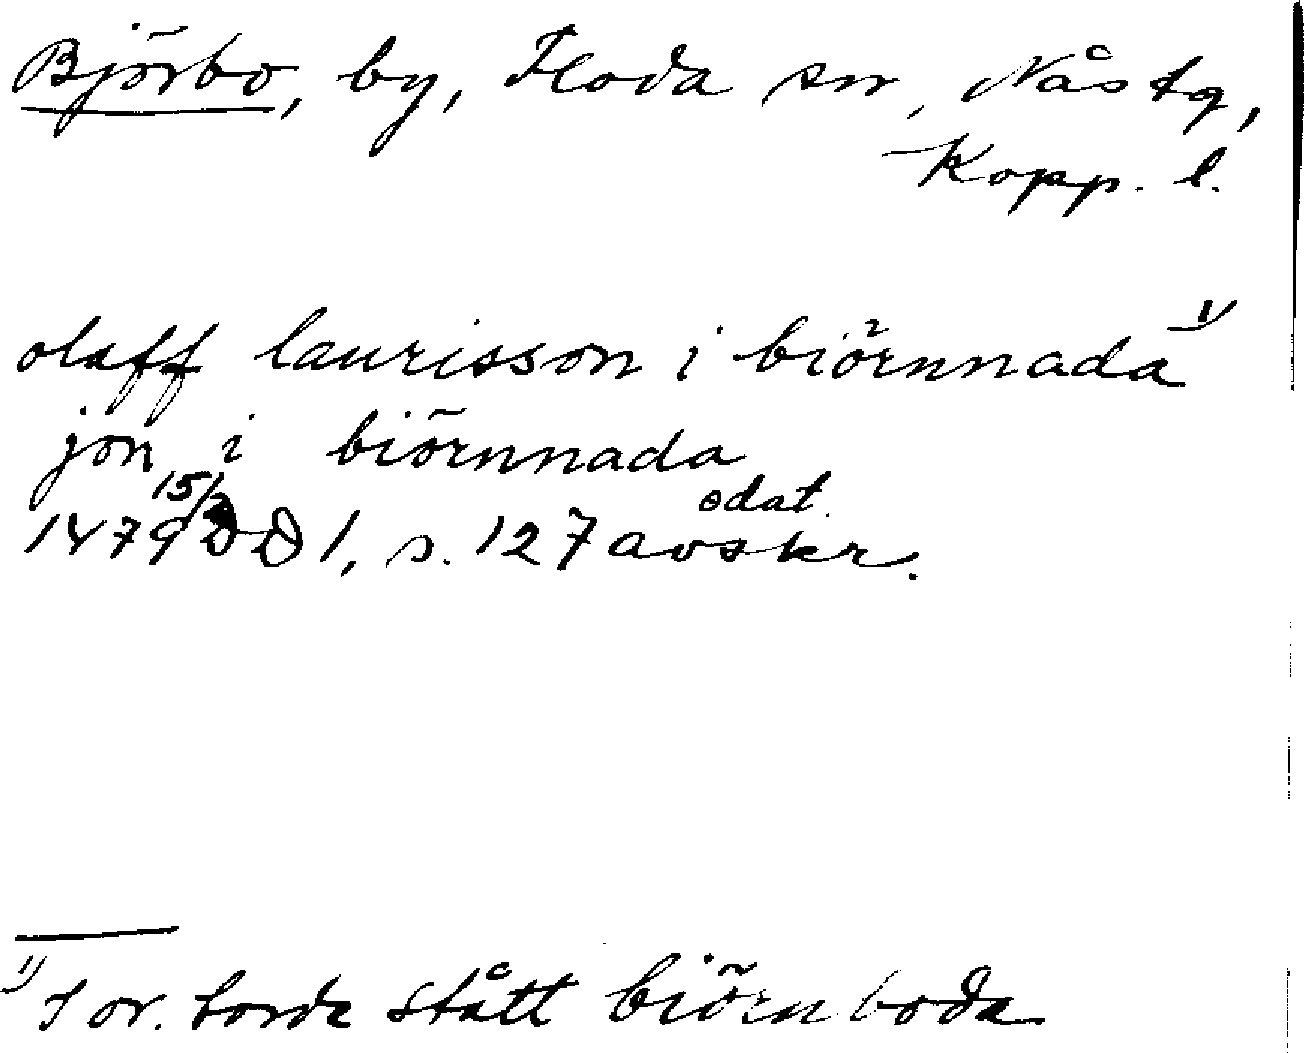 Björbo, by, Floda sn, Nås tg,
Kopp. l.
olaff laurisson i biörnnada 1)
jon i biörnnada
1479 15/2 DD 1, s. 127 odat. avskr.
1) I or. torde stått biörnboda